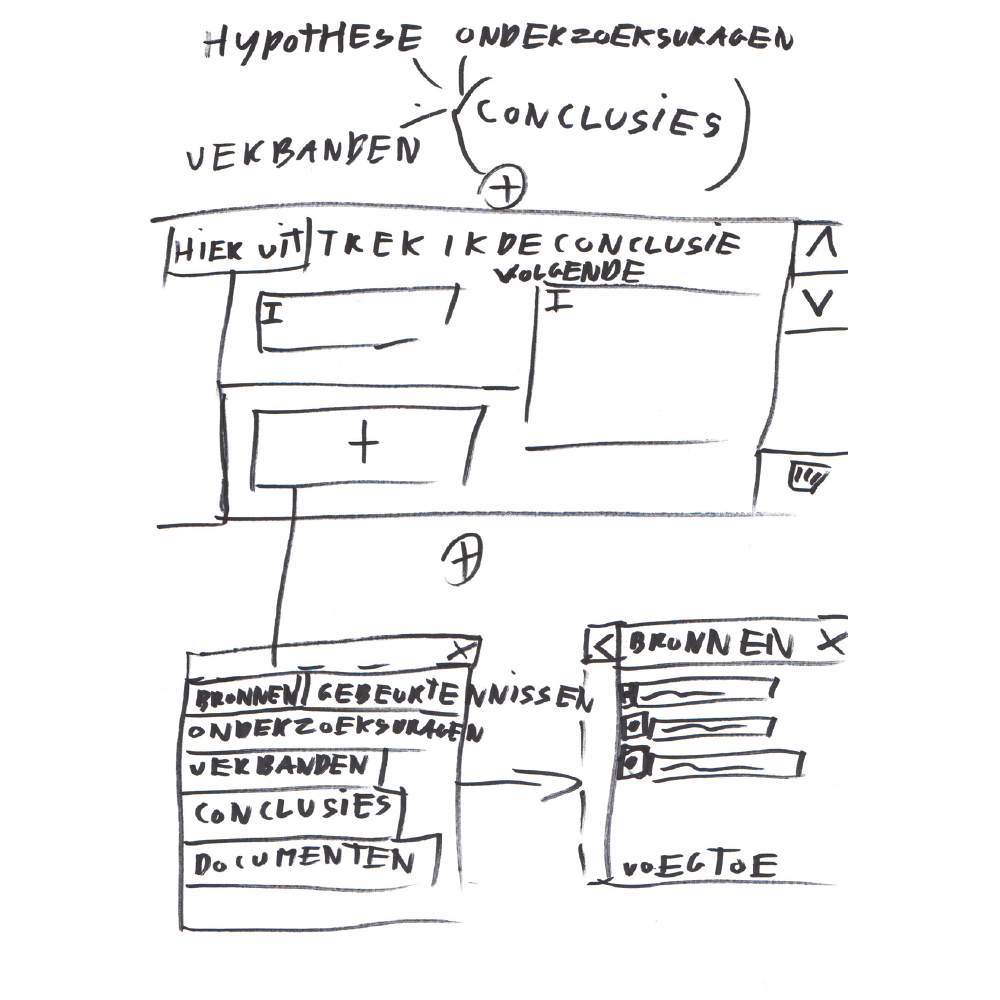 HYPOTHESE ONDERZOEKSVRAGEN
(CONCLUSIES)
VERBANDEN
+
HIER UIT TREK IK DE CONCLUSIE
VOLGENDE
I
I
+
+
X
BRONNEN GEBEURTENNISSEN
ONDERZOEKSVRAGEN
VERBANDEN
CONCLUSIES
DOCUMENTEN
< BRONNEN X
VOEG TOE